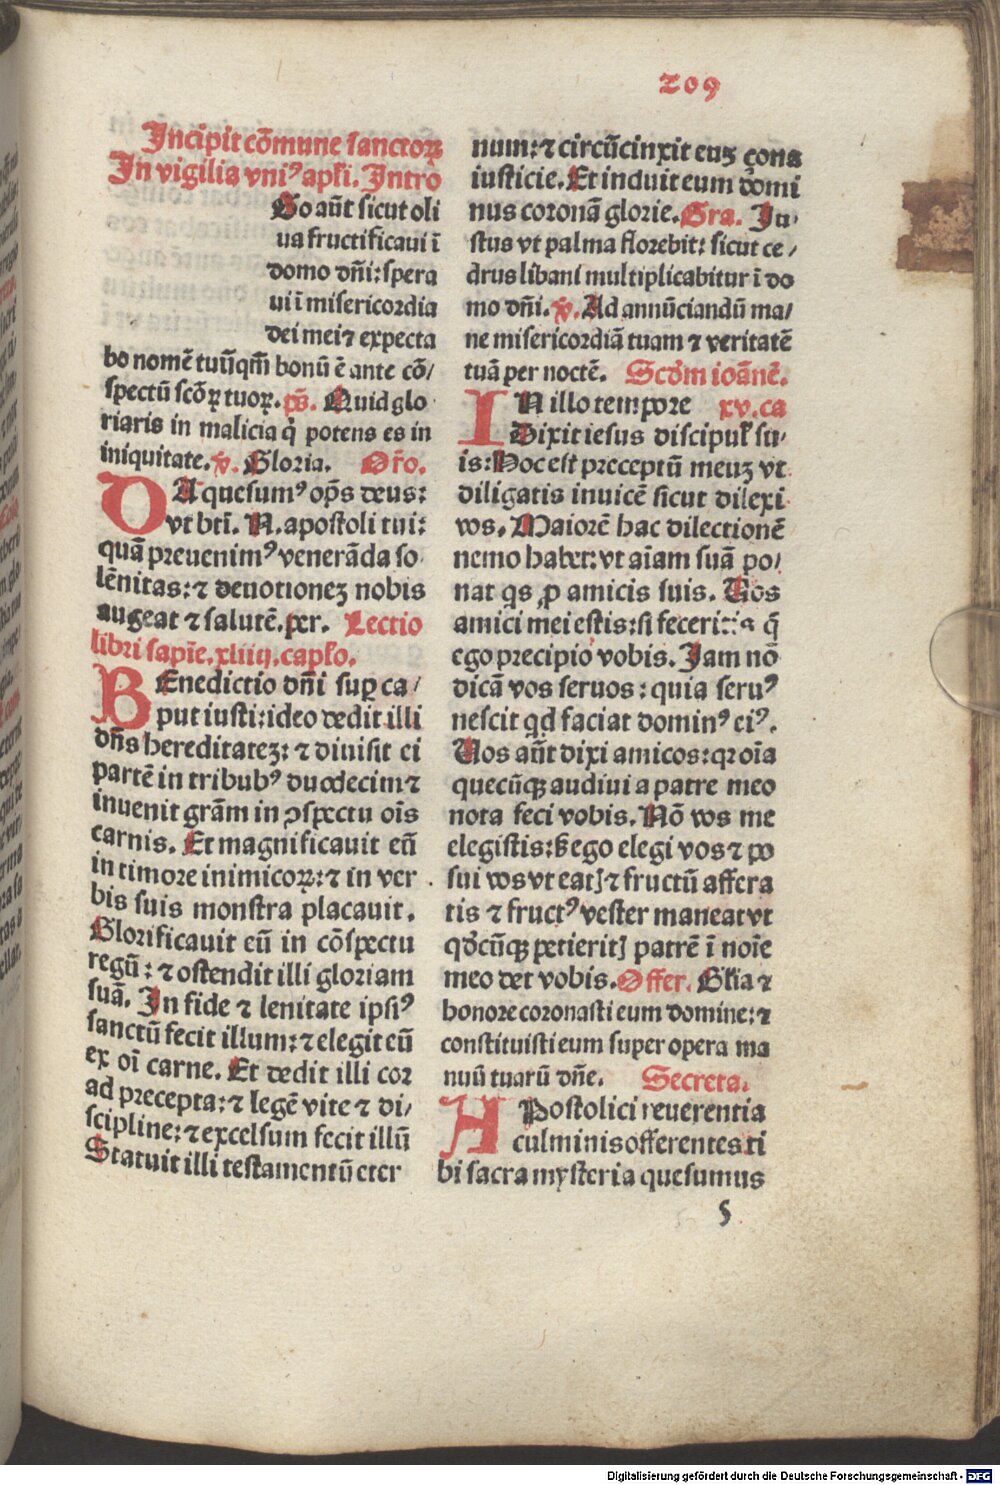 209
Incipit cōmune sanctoꝝ
In vigilia vniꝰ apl̄i. Intro
Go aūt sicut oli
ua fructificaui ī
domo dn̄i: spera
ui ī misericordia
dei mei ⁊ expecta
bo nomē tuū qm̄ bonū ē ante cō/
spectū scōꝝ tuoꝝ. ps̄. Quid glo
riaris in malicia q̇ potens es in
iniquitate. v̄. Gloria. Or̄o.
DA quesumꝰ op̄s deus:
vt bt̄i. N. apostoli tui:
quā preuenimꝰ venerāda so
lēnitas: ⁊ deuotionez nobis
augeat ⁊ salutē. per. Lectio
libri sapīe. xliiij. capl̄o.
BEnedictio dn̄i suꝑ ca/
put iusti: ideo dedit illi
dn̄s hereditatez: ⁊ diuisit ei
partē in tribubꝰ duodecim ⁊
inuenit grām in ꝯspectu oīs
carnis. Et magnificauit eū
in timore inimicoꝝ: ⁊ in ver
bis suis monstra placauit.
Glorificauit eū in cōspectu
regū: ⁊ ostendit illi gloriam
suā. In fide ⁊ lenitate ipsiꝰ
sanctū fecit illum: ⁊ elegit eū
ex oī carne. Et dedit illi cor
ad precepta: ⁊ legē vite ⁊ di/
scipline: ⁊ excelsum fecit illū
Statuit illi testamentū eter
num: ⁊ circūcinxit euz çona
iusticie. Et induit eum domi
nus coronā glorie. Gra. Iu
stus vt palma florebit: sicut ce/
drus libani multiplicabitur ī do
mo dn̄i. v̄. Ad annūciandū ma/
ne misericordiā tuam ⁊ veritatē
tuā per noctē. Scd̄m ioānē.
IN illo tempore xv. ca
Dixit iesus discipul̕ su
is: Hoc est preceptū meuz vt
diligatis inuicē sicut dilexi
vos. Maiorē hac dilectionē
nemo habet: vt aīam suā po/
nat qs ꝓ amicis suis. Vos
amici mei estis: si feceritis q̄
ego precipio vobis. Iam nō
dicā vos seruos: quia seruꝰ
nescit qd faciat dominꝰ eiꝰ.
Uos aūt dixi amicos: qꝛ oīa
quecūqꝫ audiui a patre meo
nota feci vobis. Nō vos me
elegistis: ß ego elegi vos ⁊ po
sui vos vt eat] ⁊ fructū affera
tis ⁊ fructꝰ vester maneat vt
qd̕cūqꝫ petierit] patrē ī noīe
meo det vobis. Offer. Gl̄ia ⁊
honore coronasti eum domine: ⁊
constituisti eum super opera ma
nuū tuarū dn̄e. Secreta.
APostolici reuerentia
culminis offerentes ti
bi sacra mysteria quesumus
s
Digitalisierung gefördert durch die Deutsche Forschungsgemeinschaft - DFG